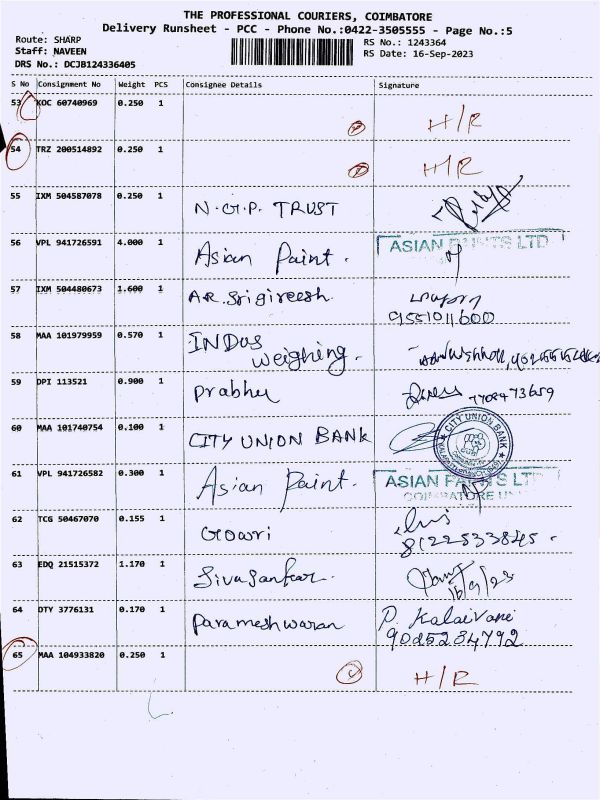 THE PROFESSIONAL COURIERS, COIMBATORE
Delivery Runsheet - PCC - Phone No.:0422-3505555 - Page No.:5
Route: SHARP
Staff: NAVEEN
DRS No.: DCJB124336405
RS No.: 1243364
RS Date: 16-Sep-2023
S No Consignment No Weight PCS Consignee Details Signature
53 KOC 60740969 0.250 1 H/R
54 TRZ 200514892 0.250 1 H/R
55 IXM 504587078 0.250 1 N.G.P. TRUST
56 VPL 941726591 4.000 1 Asian Paint. ASIAN PAINTS LTD
57 IXM 504480673 1.600 1 A.R. Srigireesh.
9551011600
58 MAA 101979959 0.570 1 INDUS
weighing.
59 DPI 113521 0.900 1 Prabhu 7708473659
60 MAA 101740754 0.100 1 CITY UNION BANK CITY UNION BANK
61 VPL 941726582 0.300 1 Asian Paint. ASIAN PAINTS LTD
COIMBATORE
62 TCG 50467070 0.155 1 Gowri
8122533845.
63 EDQ 21515372 1.170 1 Sivasankar.
16/9/23
64 DTY 3776131 0.170 1 Parameshwaran P. Kalaivani
9025284792
65 MAA 104933820 0.250 1 H/R